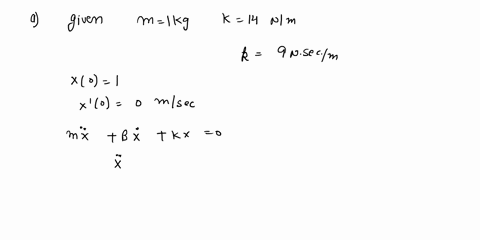 a) given m=1kg k=14 N/m
k = 9 N.sec/m
x(0)=1
x'(0)= 0 m/sec
mẍ +βẋ +kx =0
ẍ